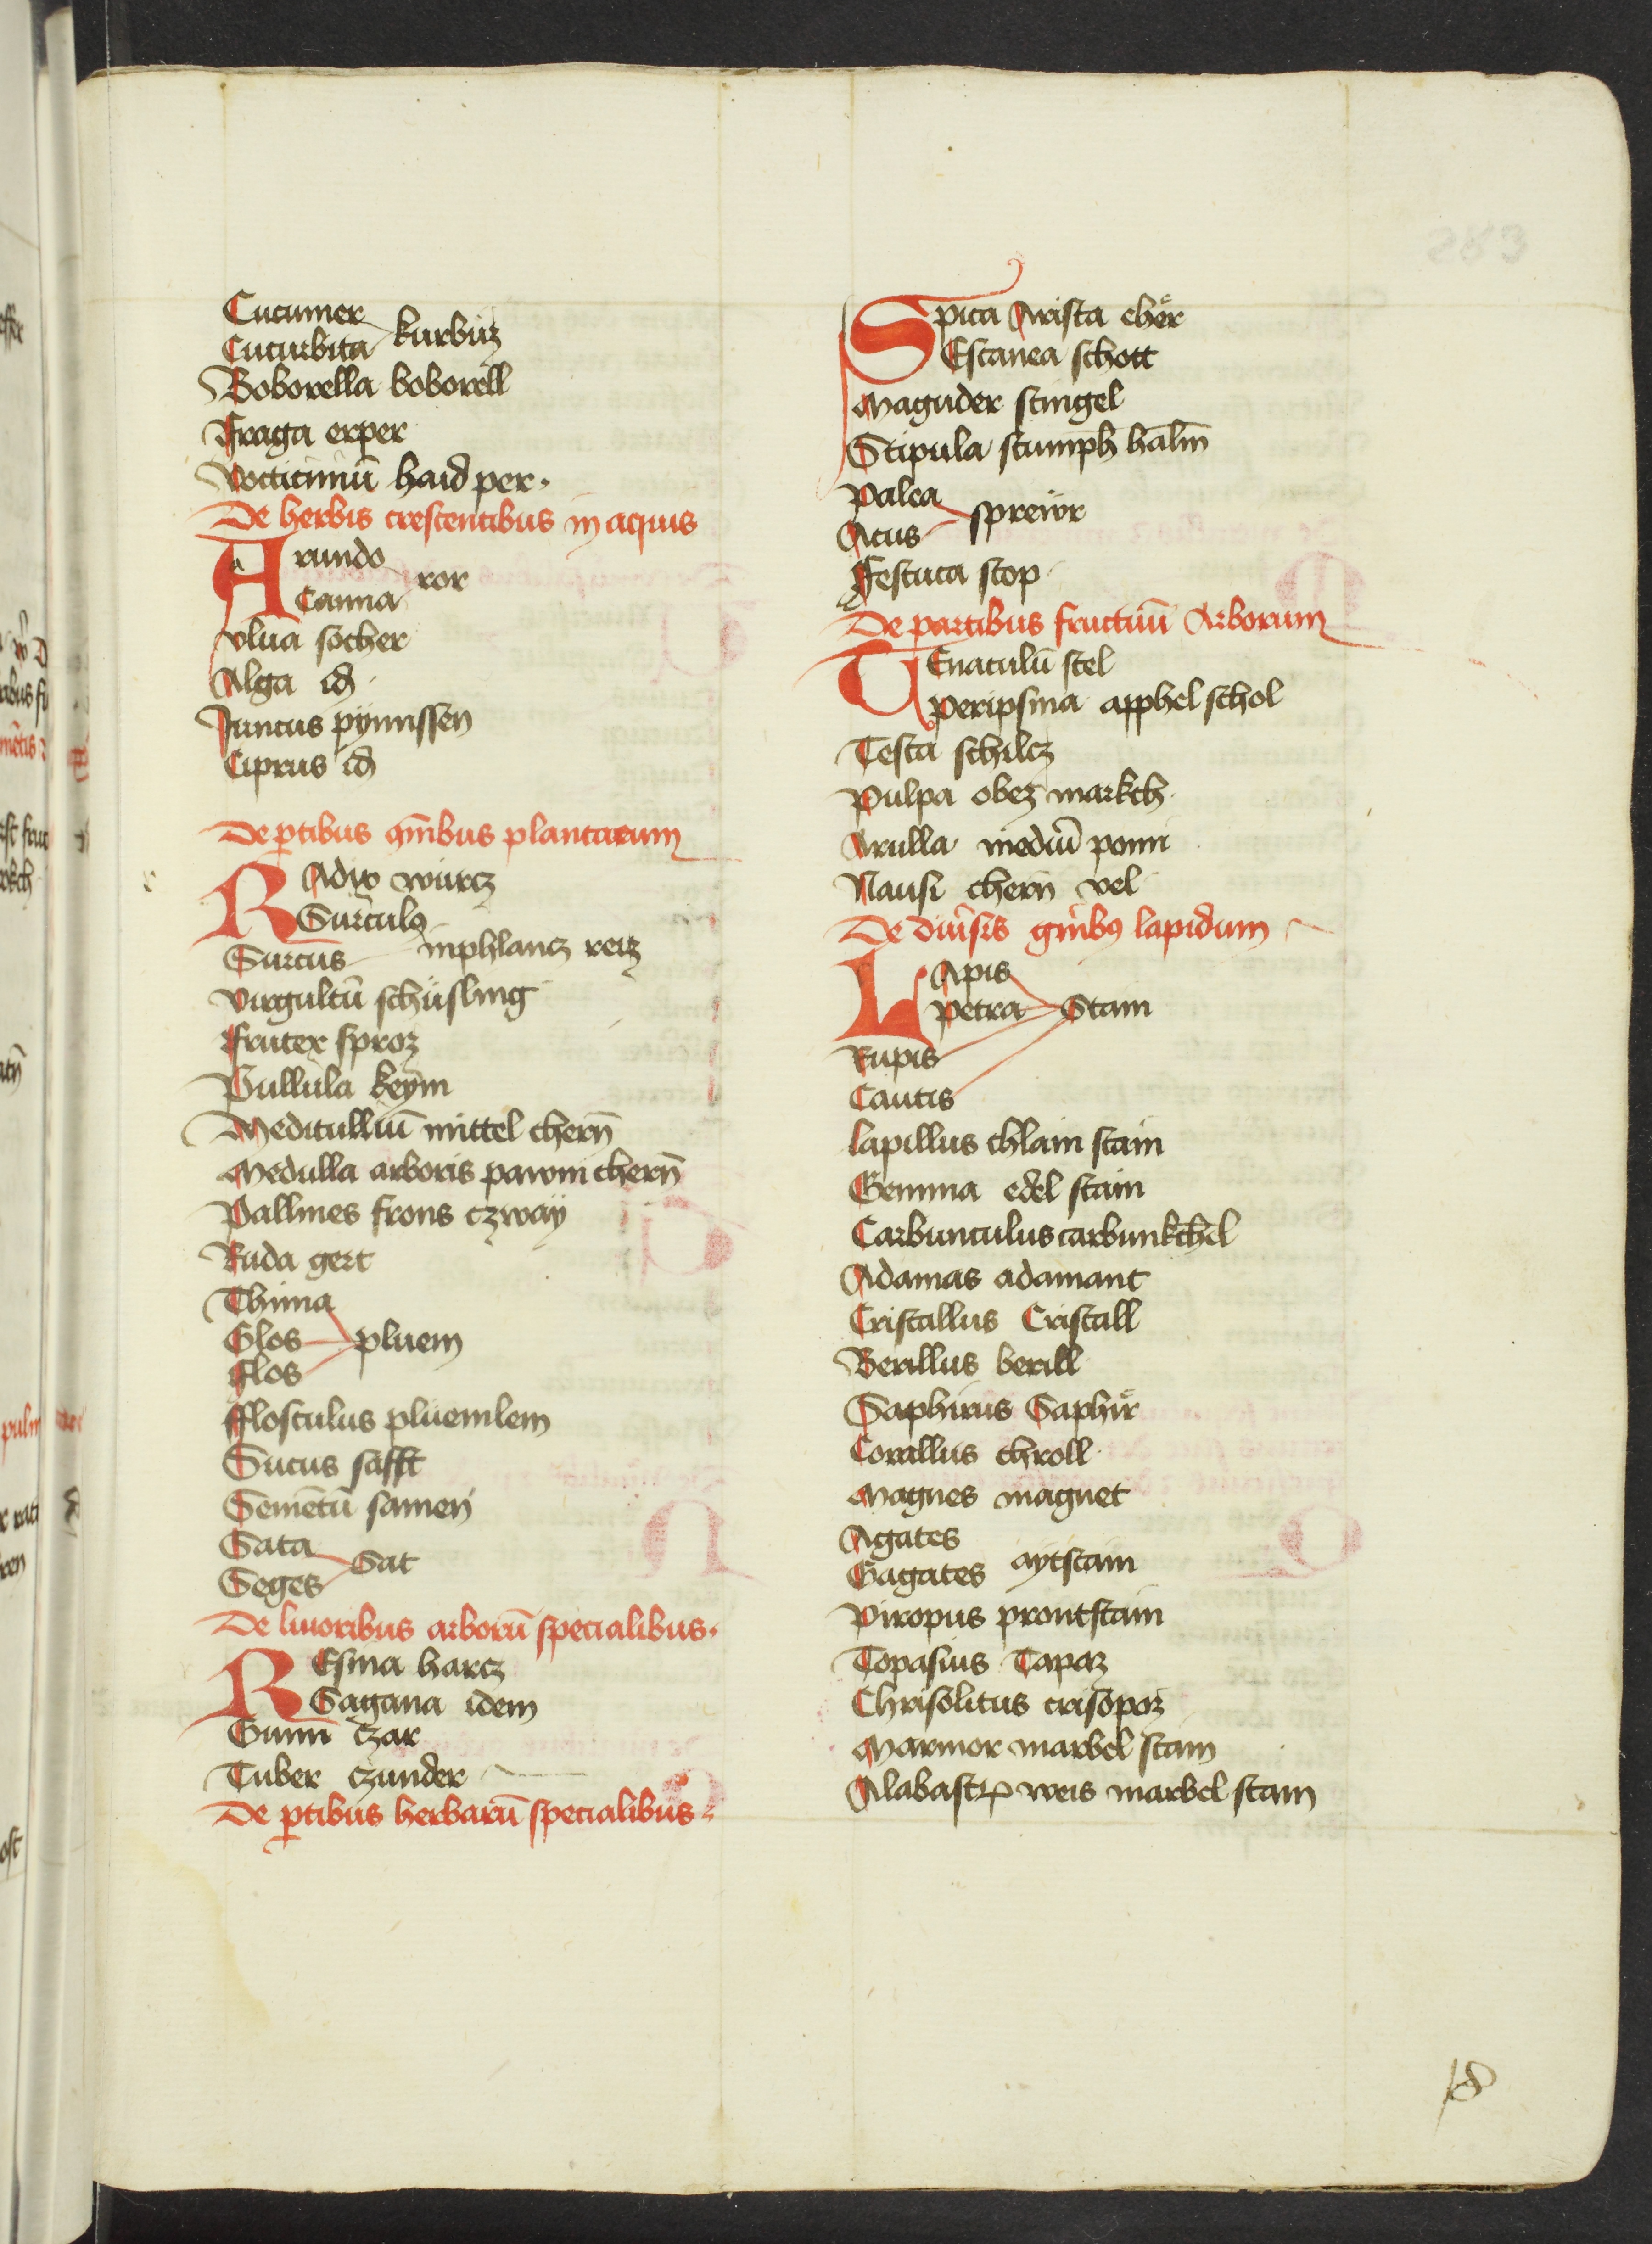 Cucumer
Cucurbita kurbiz
Boborella boborell
Fraga erper
Vaccinniū haid per.
De herbis crescentibus in aquis
Arundo
Canna ror
vlua socher
Alga id
Juncus pynnssen
Ciprus id
De ptibus oīnibus plantarum
RAdix wurcz
Surculꝯ
Surcus inphlancz reiz
virgultū schüsling
Frutex sproz
Pullula keym
Meditulliū mittel cherñ
Medulla arboris pawm cherñ
Pallmes frons czway
Ruda gert
Thima
Glos pluem
flos
fflosculus plüemlem
Sucus safft
Semētū samen
Sata
Seges Sat
De liuoribus arborū specialibus.
REsina harcz
Sagana idem
Gumī czar
Tuber czunder
De ptibus herbarū specialibus
Spica Arista eher
Escanea schott
Maguder stingel
Stipula stumph halm
palea
Acus spreiwr
Festuca stop
De partibus fructuū Arborum
TEnaculū stel
peripsma apphel schol
Testa schilcz
Pulpa obez markch
Arulla mediū pomi
Nausi chern vel
De diūsis gn̄ibꝯ lapidum
LApis
petra Stain
Rupis
Cautis
lapillus chlain stain
Gemma edel stain
Carbunculus carbunkchel
Adamas adamant
Cristallus Cristall
Berillus berill
Saphirus Saphir
Corallus chroll
Magnes magnet
Agates
Gagates aytstain
Piropus prontstain
Topasius Tapaz
Chrisolitus crisopoz
Marmor marbel stain
Alabastrꝝ weis marbel stain